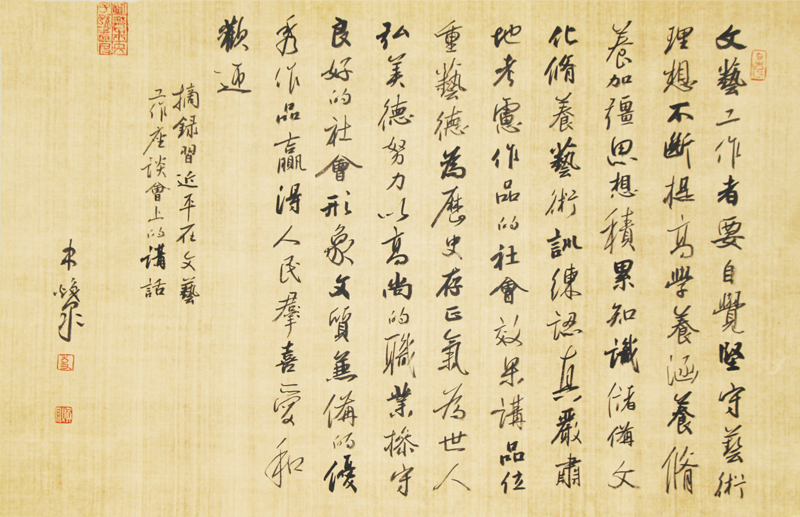 文藝工作者要自覺堅守藝術
理想不斷提高學養涵養脩
養加彊思想積累知識儲備文
化脩養藝術訓練認真嚴肅
地考慮作品的社會效果講品位
重藝德為歷史存正氣為世人
弘美德努力以高尚的職業操守
良好的社會形象文質兼備的優
秀作品贏得人民羣喜愛和
歡迎
摘録習近平在文藝
工作座談會上的講話